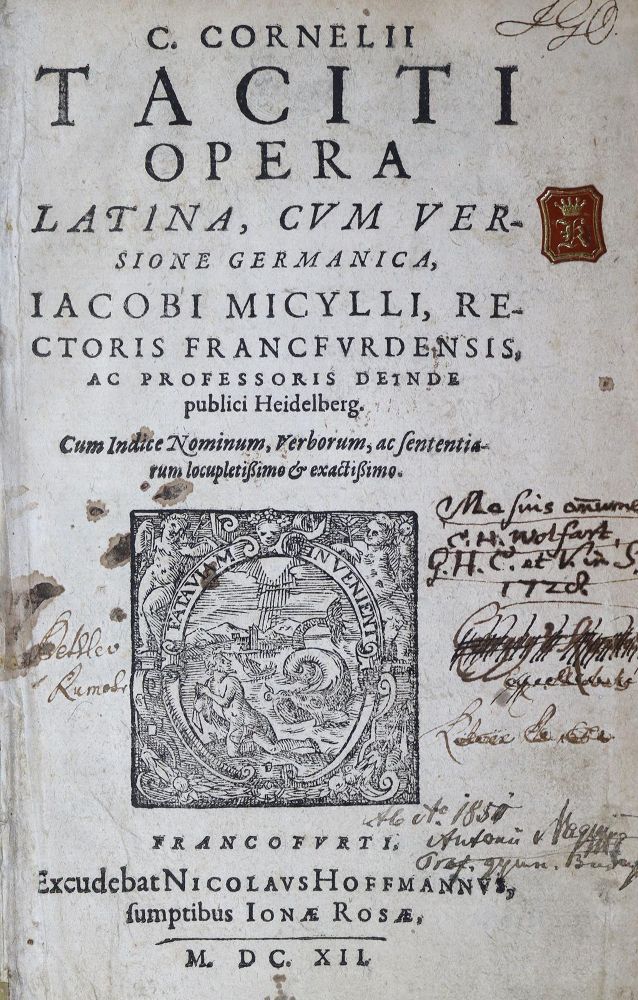 JGO.
C. CORNELII
TACITI
OPERA
LATINA, CVM VER-
SIONE GERMANICA,
IACOBI MICYLLI, RE-
CTORIS FRANCFVRDENSIS,
AC PROFESSORIS DEINDE
publici Heidelberg.
Cum Indice Nominum, Verborum, ac ſententia-
rum locupletißimo & exactißimo.
K
Me suis
C. H. Wolfart,
G. H. C. et V. in S.
1728.
FATA VIAM INVENIENT
Ab Aº. 1850
Antonii
Prof. gymn.
FRANCOFVRTI,
Excudebat NICOLAVS HOFFMANNVS,
ſumptibus IONÆ ROSÆ,
M. DC. XII.